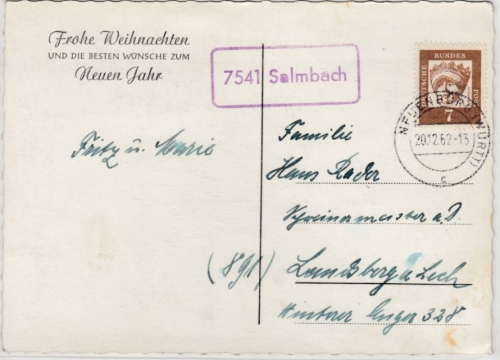 Frohe Weihnachten
UND DIE BESTEN WÜNSCHE ZUM
Neuen Jahr
7541 Salmbach
DEUTSCHE BUNDESPOST
7
NEUENBÜRG (WÜRTT)
20.12.62-15
c
Fritz u. Marie
Familie
Hans Rader
a.D.
(891) Landsberg a Lech
Hinterer Anger 328